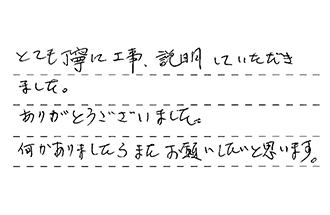 とても丁寧に工事、説明していただき
ました。
ありがとうございました。
何かありましたらまたお願いしたいと思います。